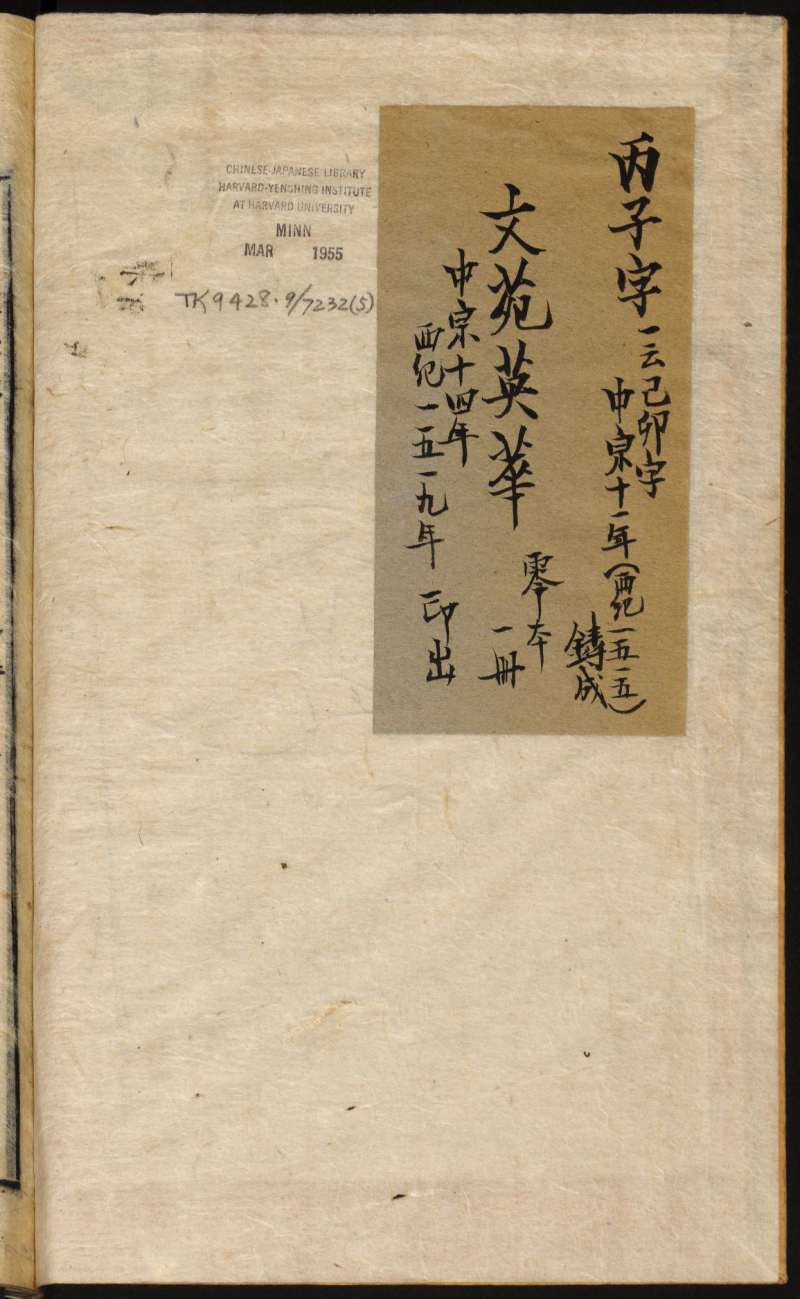 丙子字 一云己卯字
中宗十一年(西紀一五一五)
鑄成
文苑英華
零本
一冊
中宗十四年
西紀一五一九年 印出
CHINESE-JAPANESE LIBRARY
HARVARD-YENCHING INSTITUTE
AT HARVARD UNIVERSITY
MINN
MAR 1955
TK9428.9/7232(5)